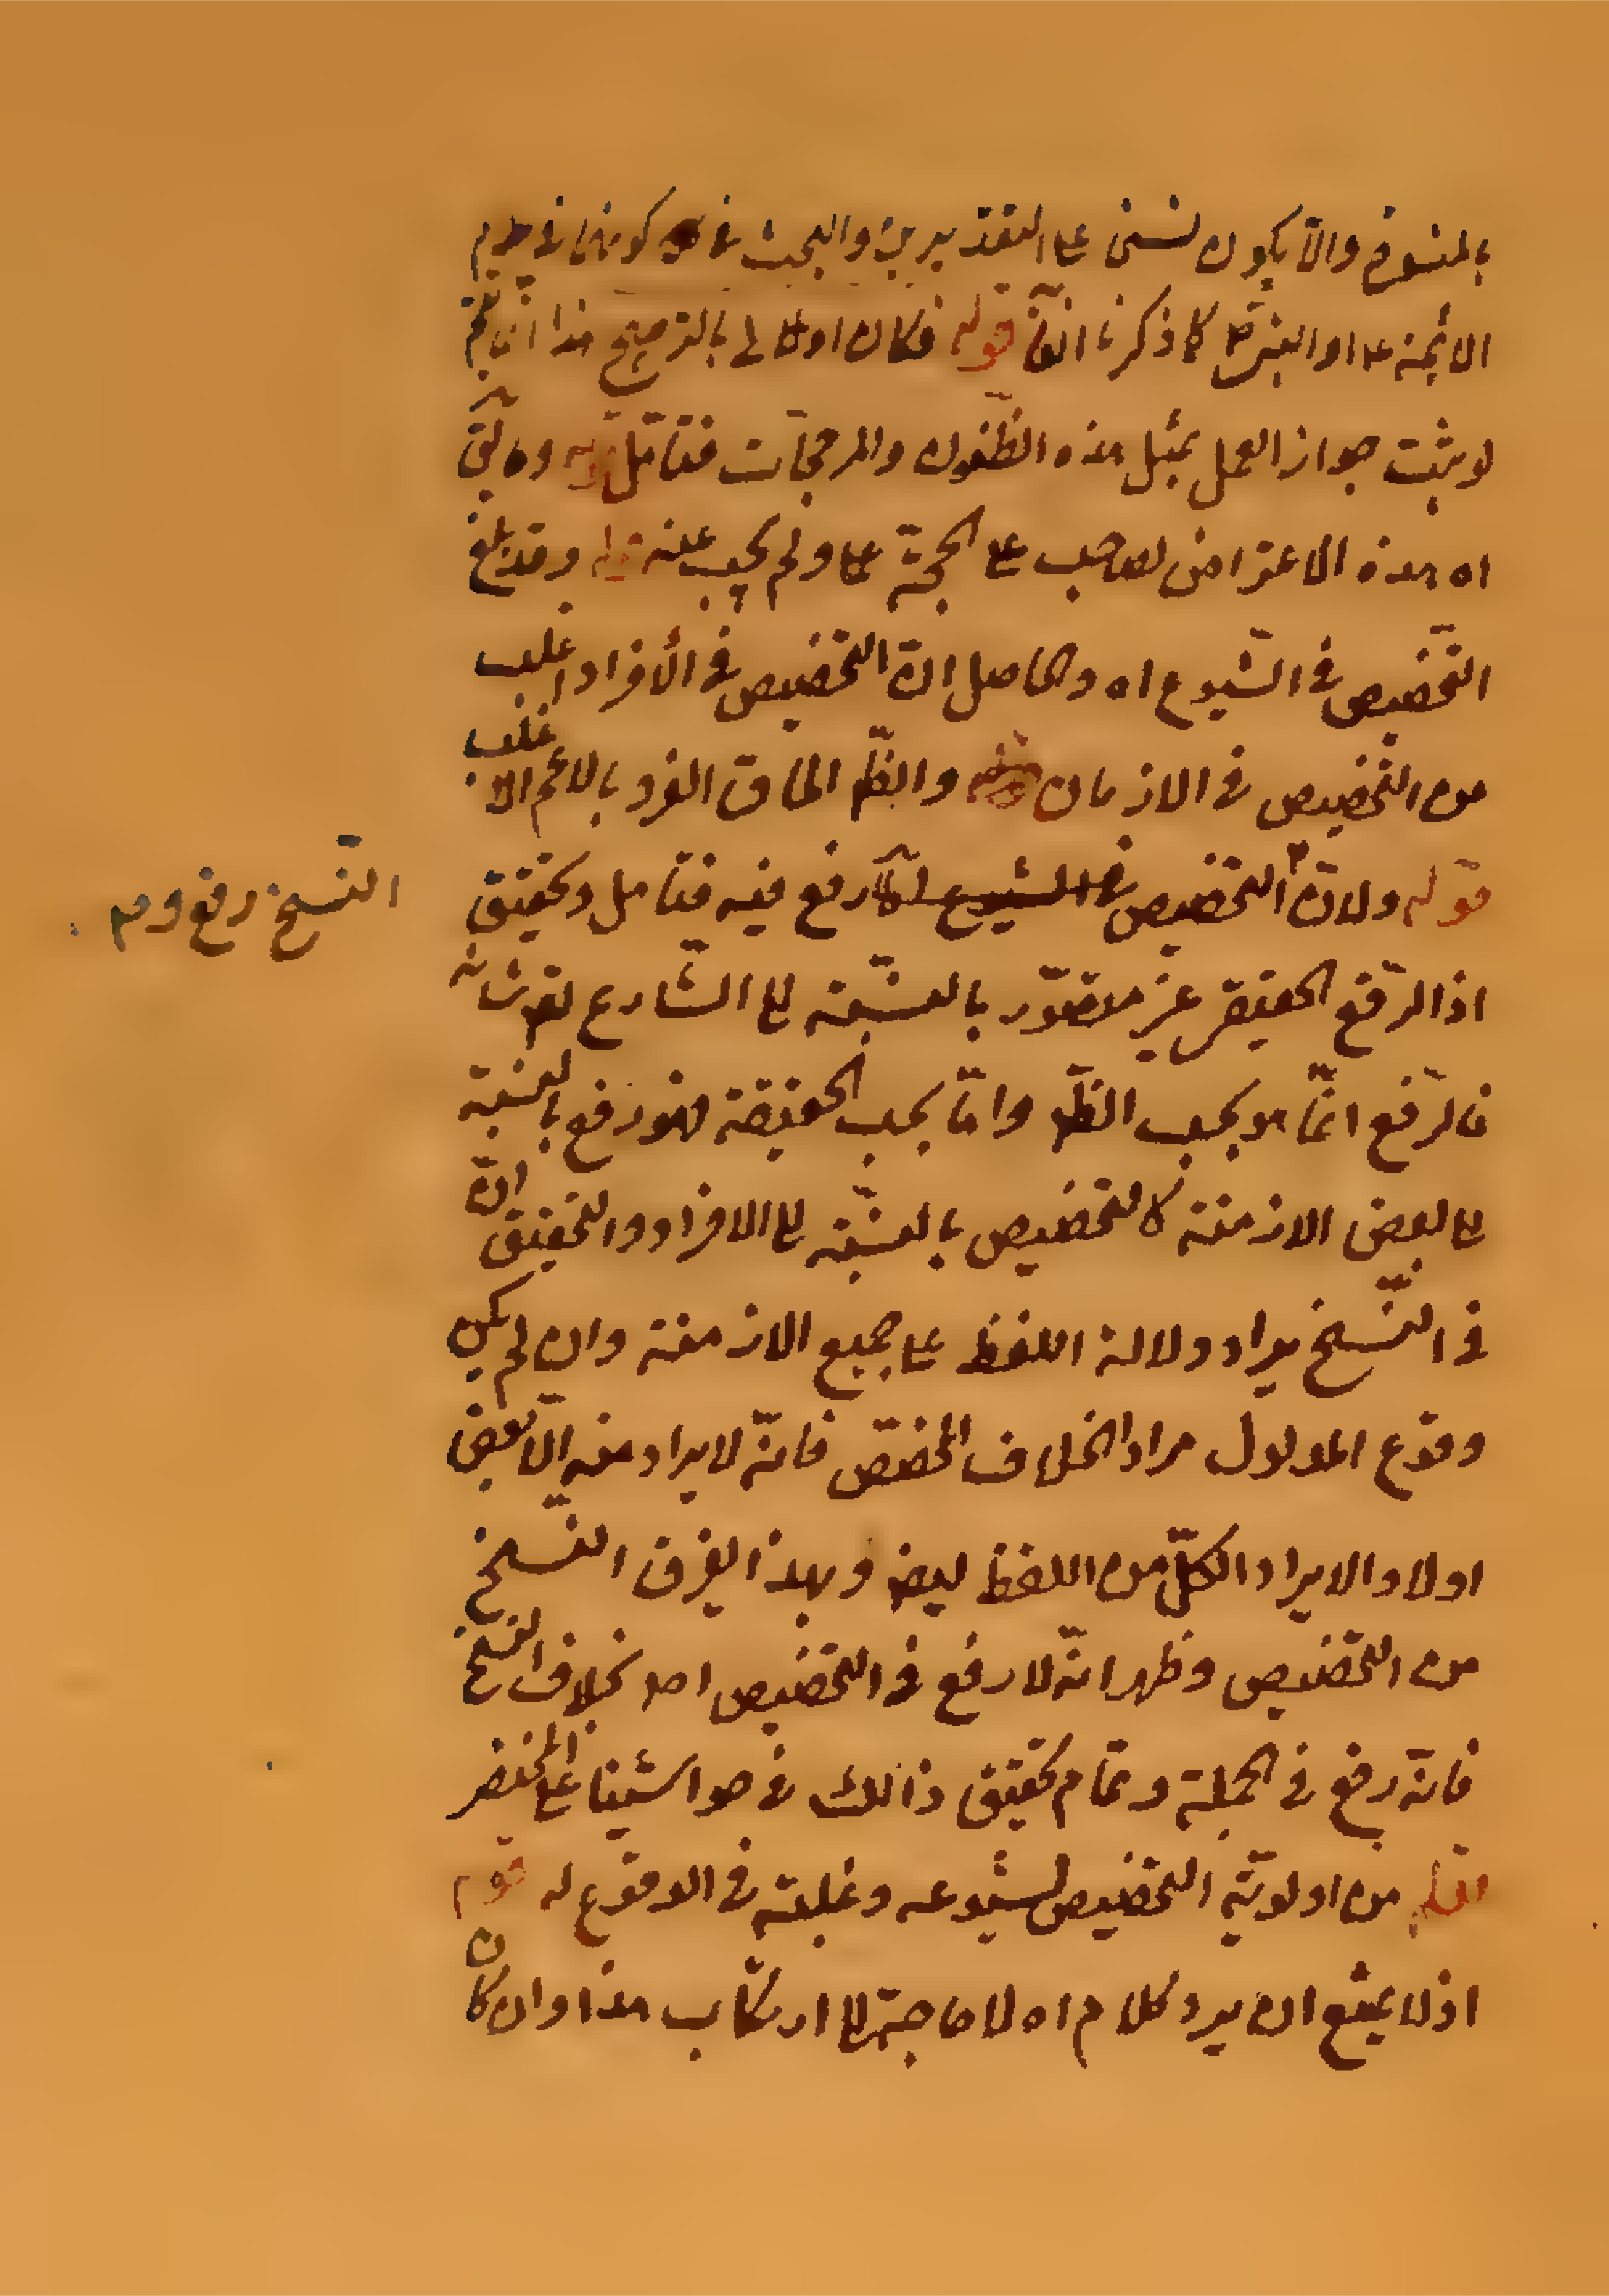 بالمنسوخ والا يكون نسخ على التقديرين والبحث فى كونهما فى كلام
الائمة ع او النبى ص كما ذكرنا انفا قوله فكان اولى بالترجيح هذا انما يتم
لو يثبت جواز العمل بمثل هذه الظنون والمرجحات فتأمل قوله
اه هذه الاعتراض لصاحب على الحجة ولم يجب عنه قوله وقد بلغ
التخصيص فى الشيوع اه والحاصل ان التخصيص فى الأفراد اغلب
من التخصيص فى الازمان والظن الحاق الفرد بالاعم الاغلب
قوله ولان التخصيص لا رفع فيه فتأمل وتحقيق
النسخ رفع وم
اذ الرفع الحقيقى غير متصور بالنسبة الى الشارع تعم شانه
فالرفع انما هو بحسب الظاهر واما بحسب الحقيقة فهو رفع بالنسبة
الى بعض الازمنة كالتخصيص بالنسبة الى الافراد والتحقيق ان
فى النسخ يراد دلالة اللفظ على جميع الازمنة وان لم يكن
وقوع المدلول مرادا بخلاف المخصص فانه لا يراد منه الا بعض
اولا والا يراد الكل من اللفظ ايضا وبهذا يفرق النسخ
من التخصيص وظهر انه لا رفع فى التخصيص اصلا بخلاف النسخ
فانه رفع فى الجملة وتمام تحقيق ذالك فى حواشينا على المختصر
من اولوية التخصيص لشيوعه وغلبته فى الوقوع له قوله
اذ لا يمتنع ان يرد كلام اه لا حاجة الى ارتكاب هذا وان كان